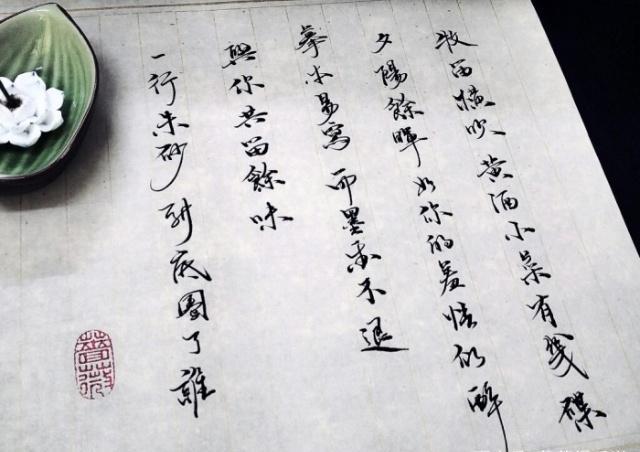 牧笛橫吹 黃酒小菜有幾碟
夕陽餘暉 如你的羞怯似醉
摹本易寫 而墨香不退
與你共留餘味
一行朱砂 到底圈了誰